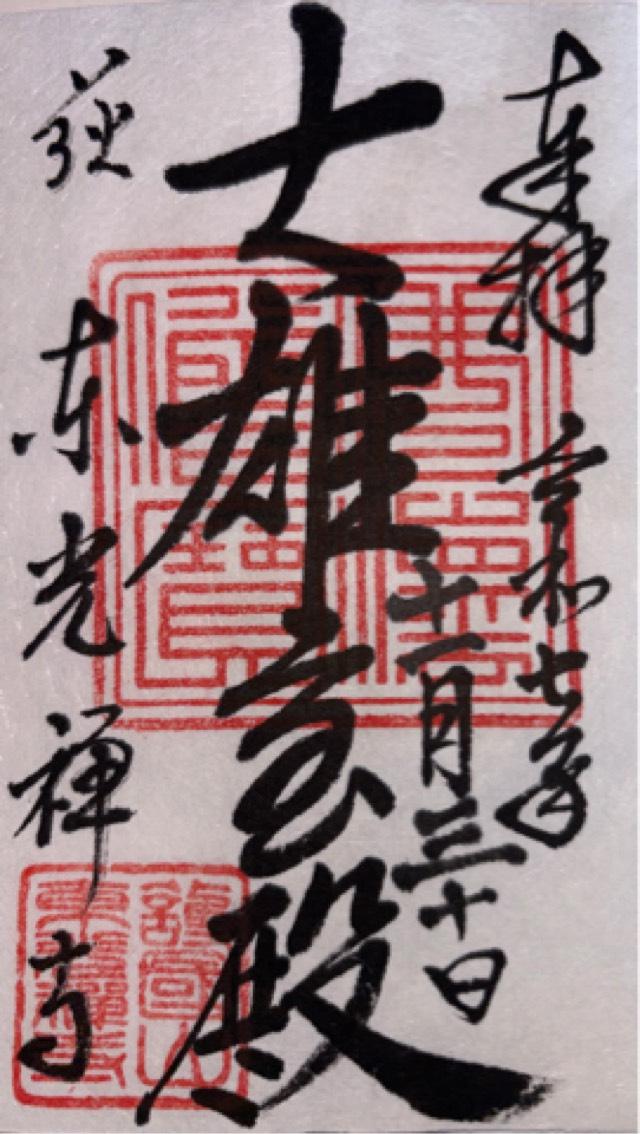 奉拝 令和七年
十一月三十日
大雄宝殿
萩 東光禅寺
護國山